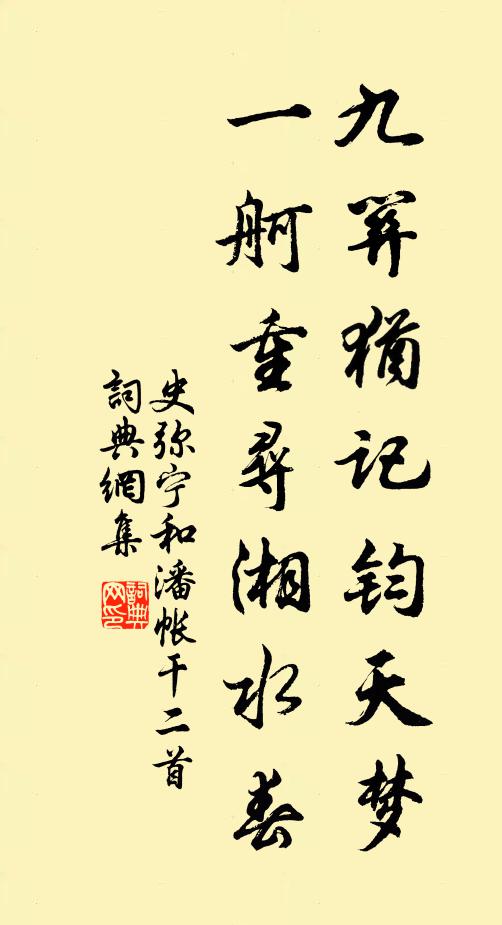 九關猶记钧天梦
一舸重尋湘水春
史弥宁和潘帐干二首
詞典網集
詞典
网印